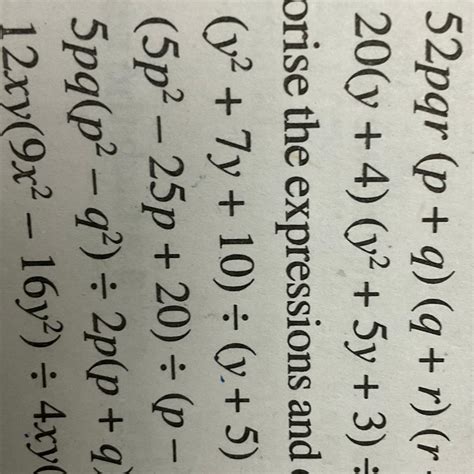 52pqr (p + q) (q + r) (r
20(y + 4) (y² + 5y + 3) ÷
orise the expressions and
(y² + 7y + 10) ÷ (y + 5)
(5p² – 25p + 20) ÷ (p –
5pq(p² – q²) ÷ 2p(p + q)
12xy(9x² – 16y²) ÷ 4xy(